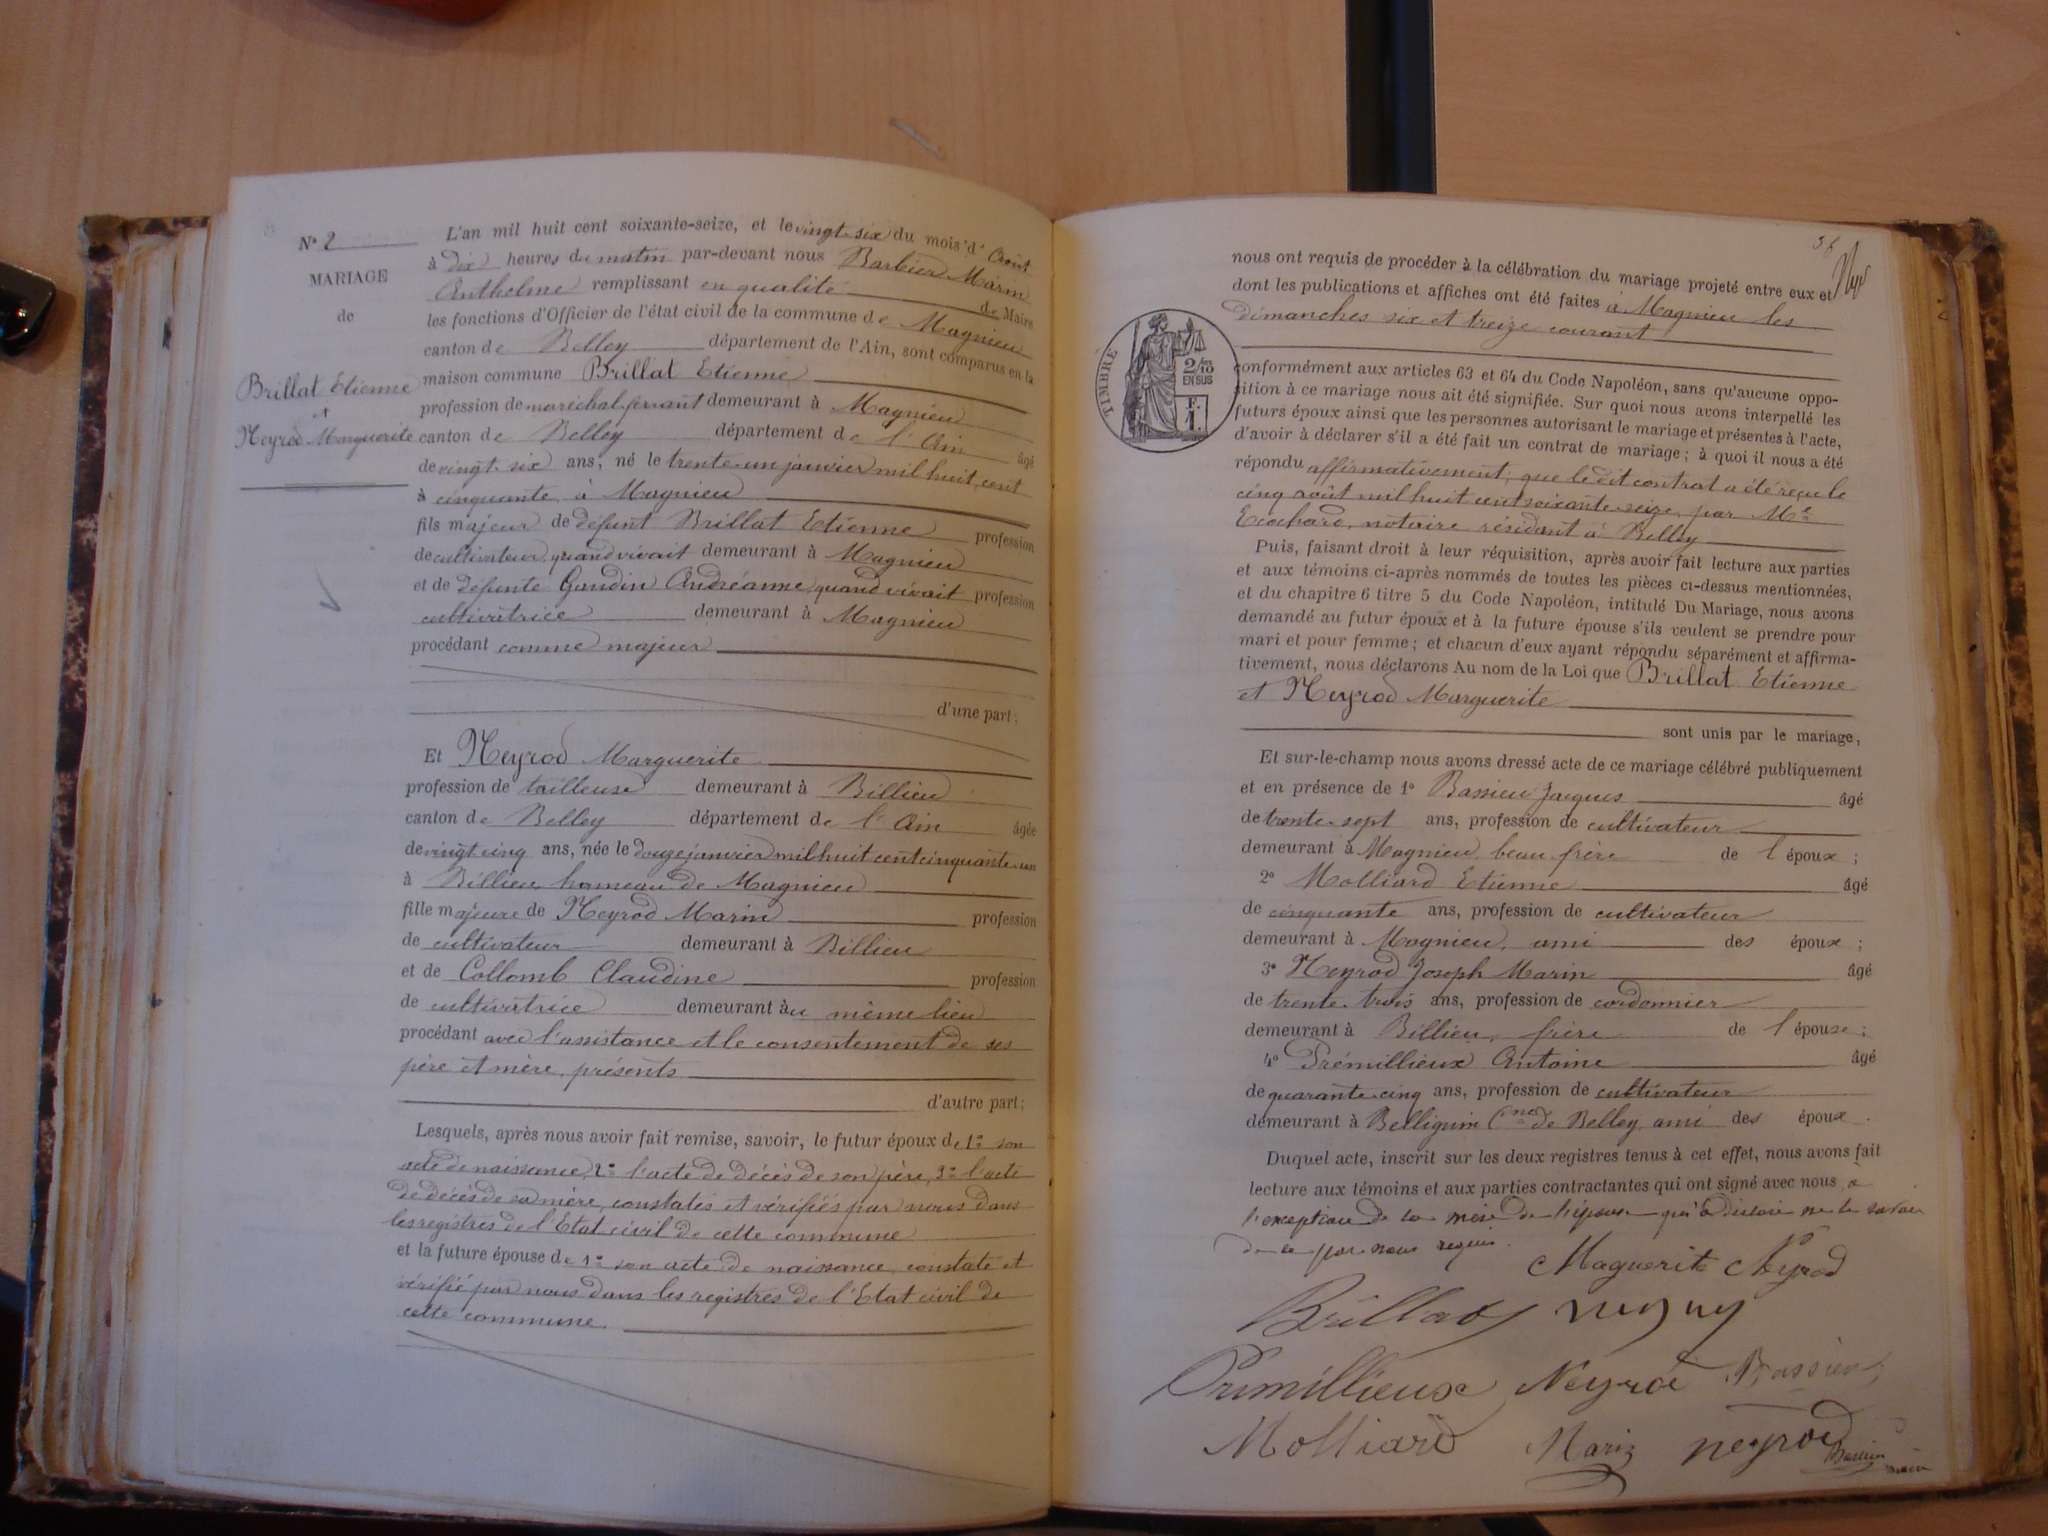 N° 2
MARIAGE
de
Brillat Etienne
et
Neyrod Marguerite
L'an mil huit cent soixante-seize, et le vingt-six du mois d'Août
à dix heures du matin par-devant nous Barbier Marin
Anthelme remplissant en qualité de Maire
les fonctions d'Officier de l'état civil de la commune de Magnieu
canton de Belley département de l'Ain, sont comparus en la
maison commune Brillat Etienne
profession de maréchal-ferrant demeurant à Magnieu
canton de Belley département de l'Ain âgé
de vingt-six ans, né le trente-un janvier mil huit cent
cinquante, à Magnieu
fils majeur de défunt Brillat Etienne profession
de cultivateur, quand vivait demeurant à Magnieu
et de défunte Gaudin Andréanne, quand vivait profession
cultivatrice demeurant à Magnieu
procédant comme majeur
d'une part;
Et Neyrod Marguerite
profession de tailleuse demeurant à Billieu
canton de Belley département de l'Ain âgée
de vingt cinq ans, née le douze janvier mil huit cent cinquante-un
à Billieu, hameau de Magnieu
fille majeure de Neyrod Marin profession
de cultivateur demeurant à Billieu
et de Collomb Claudine profession
de cultivatrice demeurant au même lieu
procédant avec l'assistance et le consentement de ses
père et mère, présents
d'autre part;
Lesquels, après nous avoir fait remise, savoir, le futur époux de 1° son
acte de naissance, 2° l'acte de décès de son père, 3° l'acte
de décès de sa mère, constatés et vérifiés par nous dans
les registres de l'Etat civil de cette commune
et la future épouse de 1° son acte de naissance, constaté et
vérifié par nous dans les registres de l'Etat civil de
cette commune
nous ont requis de procéder à la célébration du mariage projeté entre eux et
dont les publications et affiches ont été faites à Magnieu les
dimanches six et treize courant
TIMBRE
2/10
EN SUS
F.
1.
conformément aux articles 63 et 64 du Code Napoléon, sans qu'aucune oppo-
sition à ce mariage nous ait été signifiée. Sur quoi nous avons interpellé les
futurs époux ainsi que les personnes autorisant le mariage et présentes à l'acte,
d'avoir à déclarer s'il a été fait un contrat de mariage; à quoi il nous a été
répondu affirmativement; que le dit contrat a été reçu le
cinq août mil huit cent soixante-seize, par Me
Ecochard, notaire résidant à Belley
Puis, faisant droit à leur réquisition, après avoir fait lecture aux parties
et aux témoins ci-après nommés de toutes les pièces ci-dessus mentionnées,
et du chapitre 6 titre 5 du Code Napoléon, intitulé Du Mariage, nous avons
demandé au futur époux et à la future épouse s'ils veulent se prendre pour
mari et pour femme; et chacun d'eux ayant répondu séparément et affirma-
tivement, nous déclarons Au nom de la Loi que Brillat Etienne
et Neyrod Marguerite
sont unis par le mariage,
Et sur-le-champ nous avons dressé acte de ce mariage célébré publiquement
et en présence de 1° Bassieu Jacques âgé
de trente-sept ans, profession de cultivateur
demeurant à Magnieu, beau-frère de l'époux;
2° Molliard Etienne âgé
de cinquante ans, profession de cultivateur
demeurant à Magnieu, ami des époux;
3° Neyrod Joseph Marin âgé
de trente-trois ans, profession de cordonnier
demeurant à Billieu, frère de l'épouse;
4° Prémillieux Antoine âgé
de quarante-cinq ans, profession de cultivateur
demeurant à Bellignin Cne de Belley, ami des époux.
Duquel acte, inscrit sur les deux registres tenus à cet effet, nous avons fait
lecture aux témoins et aux parties contractantes qui ont signé avec nous, à
l'exception de la mère de l'épouse qui a déclaré ne le savoir
de ce par nous requis.
Maguerite Neyrod
Brillat
Prmillieux Neyrod Bassieu
Molliard Marin neyrod
Barbier
maire